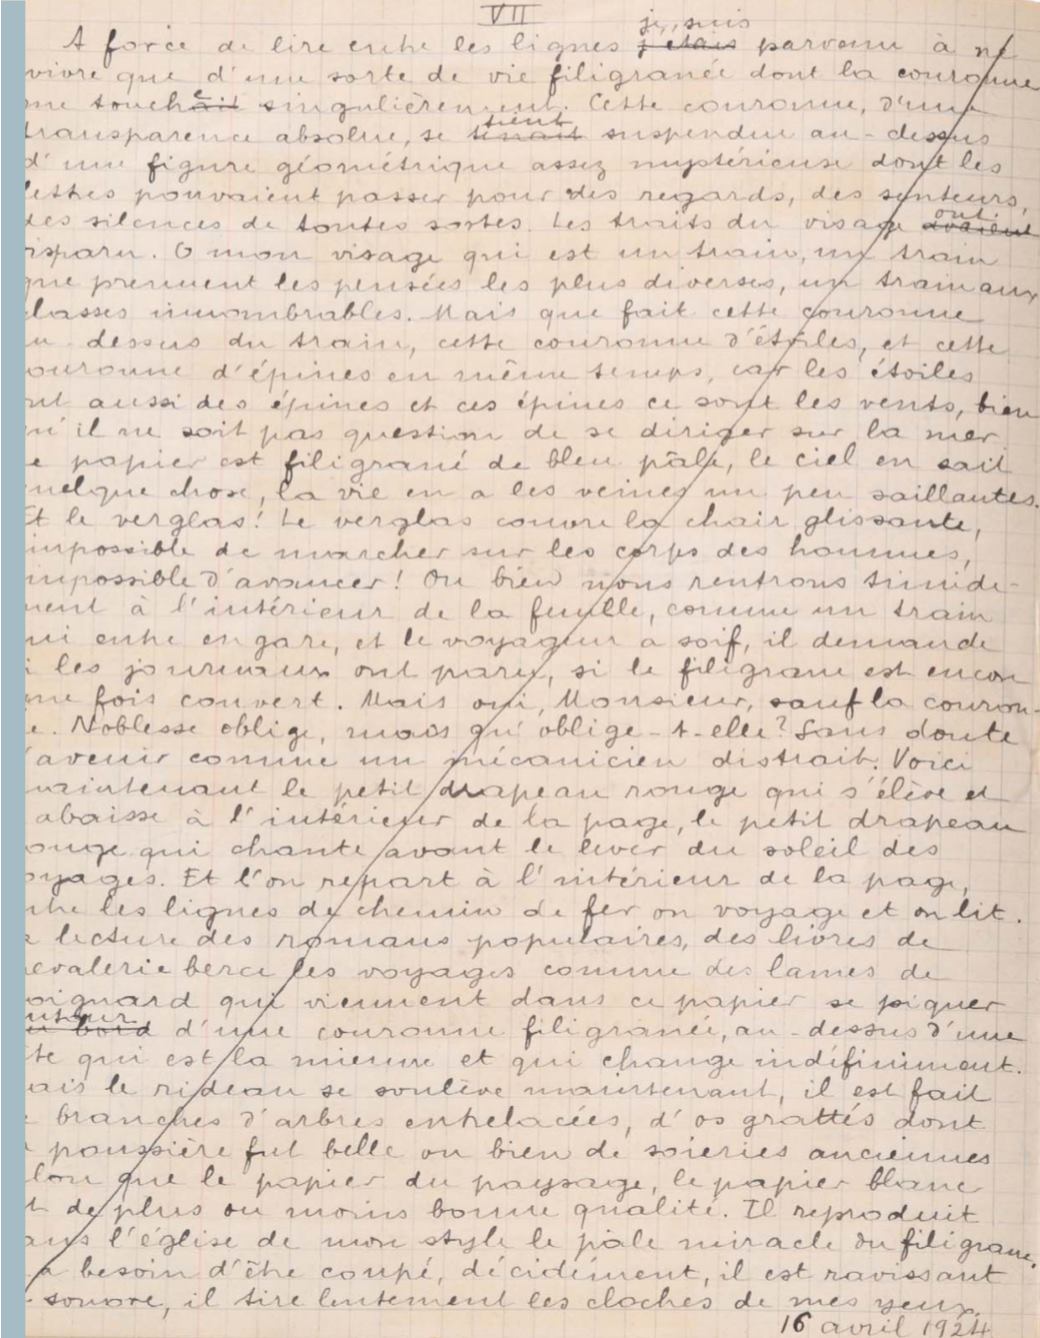 VII
je suis
A force de lire entre les lignes j'étais parvenu à ne
vivre que d'une sorte de vie filigranée dont la couronne
me touchait e singulièrement. Cette couronne, d'une
tient
transparence absolue, se tenait suspendue au-dessus
d'une figure géométrique assez mystérieuse dont les
lettres pouvaient passer pour des regards, des senteurs,
des silences de toutes sortes. Les traits du visage avaient
ont
disparu. O mon visage qui est un train, un train
que prennent les pensées les plus diverses, un train aux
classes innombrables. Mais que fait cette couronne
au dessus du train, cette couronne d'étoiles, et cette
couronne d'épines en même temps, car les étoiles
ont aussi des épines et ces épines ce sont les vents, bien
qu'il ne soit pas question de se diriger sur la mer
e papier est filigrané de bleu pâle, le ciel en sait
quelque chose, la vie en a les veines un peu saillantes.
Et le verglas! Le verglas couvre la chair glissante,
impossible de marcher sur les corps des hommes,
impossible d'avancer! Ou bien nous rentrons timide-
ment à l'intérieur de la feuille, comme un train
qui entre en gare, et le voyageur a soif, il demande
i les journaux ont paru, si le filigrane est encore
une fois couvert. Mais oui, Monsieur, sauf la couron-
e. Noblesse oblige, mais qu'oblige-t-elle? Sans doute
'avenir comme un mécanicien distrait. Voici
maintenant le petit drapeau rouge qui s'élève et
abaisse à l'intérieur de la page, le petit drapeau
rouge qui chante avant le lever du soleil des
oyages. Et l'on repart à l'intérieur de la page,
ntre les lignes de chemin de fer on voyage et on lit.
a lecture des romans populaires, des livres de
evalerie berce les voyages comme des lames de
oignard qui viennent dans ce papier se piquer
autour
au bord d'une couronne filigranée, au-dessus d'une
ête qui est la mienne et qui change indéfiniment.
ais le rideau se soulève maintenant, il est fait
e branches d'arbres entrelacées, d'os grattés dont
a poussière fut belle ou bien de soieries anciennes
lon que le papier du paysage, le papier blanc
t de plus ou moins bonne qualité. Il reproduit
ans l'église de mon style le pâle miracle du filigrane.
a besoin d'être coupé, décidément, il est ravissant
sonore, il tire lentement les cloches de mes yeux.
16 avril 1924